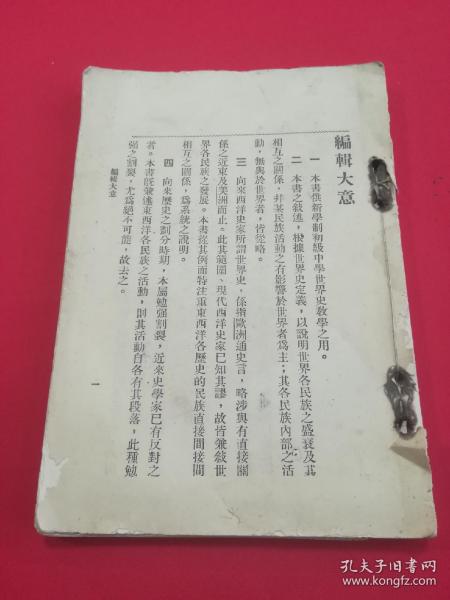 編輯大意
一　本書供新學制初級中學世界史教學之用。
二　本書之敘述，根據世界史定義，以說明世界各民族之盛衰及其
相互之關係，幷某民族活動之有影響於世界者爲主；其各民族內部之活
動，無與於世界者，皆從略。
三　向來西洋史家所謂世界史，係指歐洲通史言，略涉與有直接關
係之近東及美洲而止。此其範圍，現代西洋史家已知其謬，故皆兼敘世
界各民族之發展。本書從其例而特注重東西洋各歷史的民族直接間接間
相互之關係，爲系統之說明。
四　向來歷史之劃分時期，本屬勉强割裂，近來史學家已有反對之
者。本書旣兼述東西洋各民族之活動，則其活動自各有其段落，此種勉
强之割裂，尤爲絕不可能，故去之。
編輯大意
一
孔夫子旧书网
www.kongfz.com